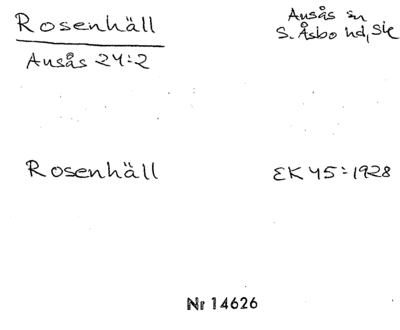 Rosenhäll
Ausås 24:2
Ausås sn
S. Åsbo hd, Sk
Rosenhäll
EK 45:1928
Nr 14626